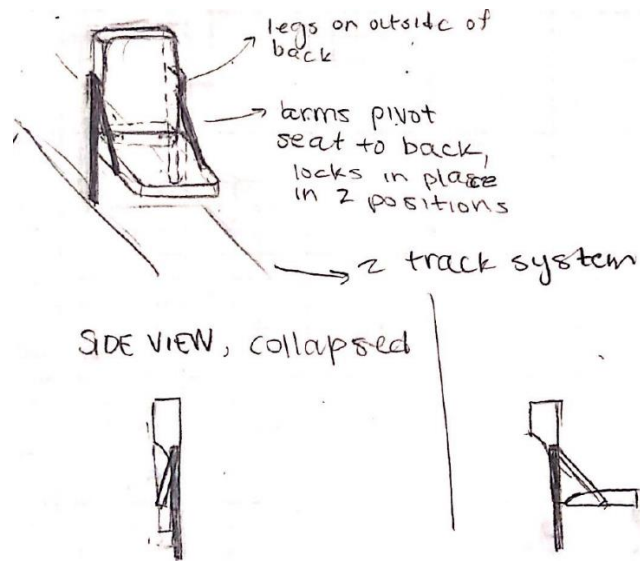 legs on outside of
back
arms pivot
seat to back,
locks in place
in 2 positions
2 track system
SIDE VIEW, collapsed